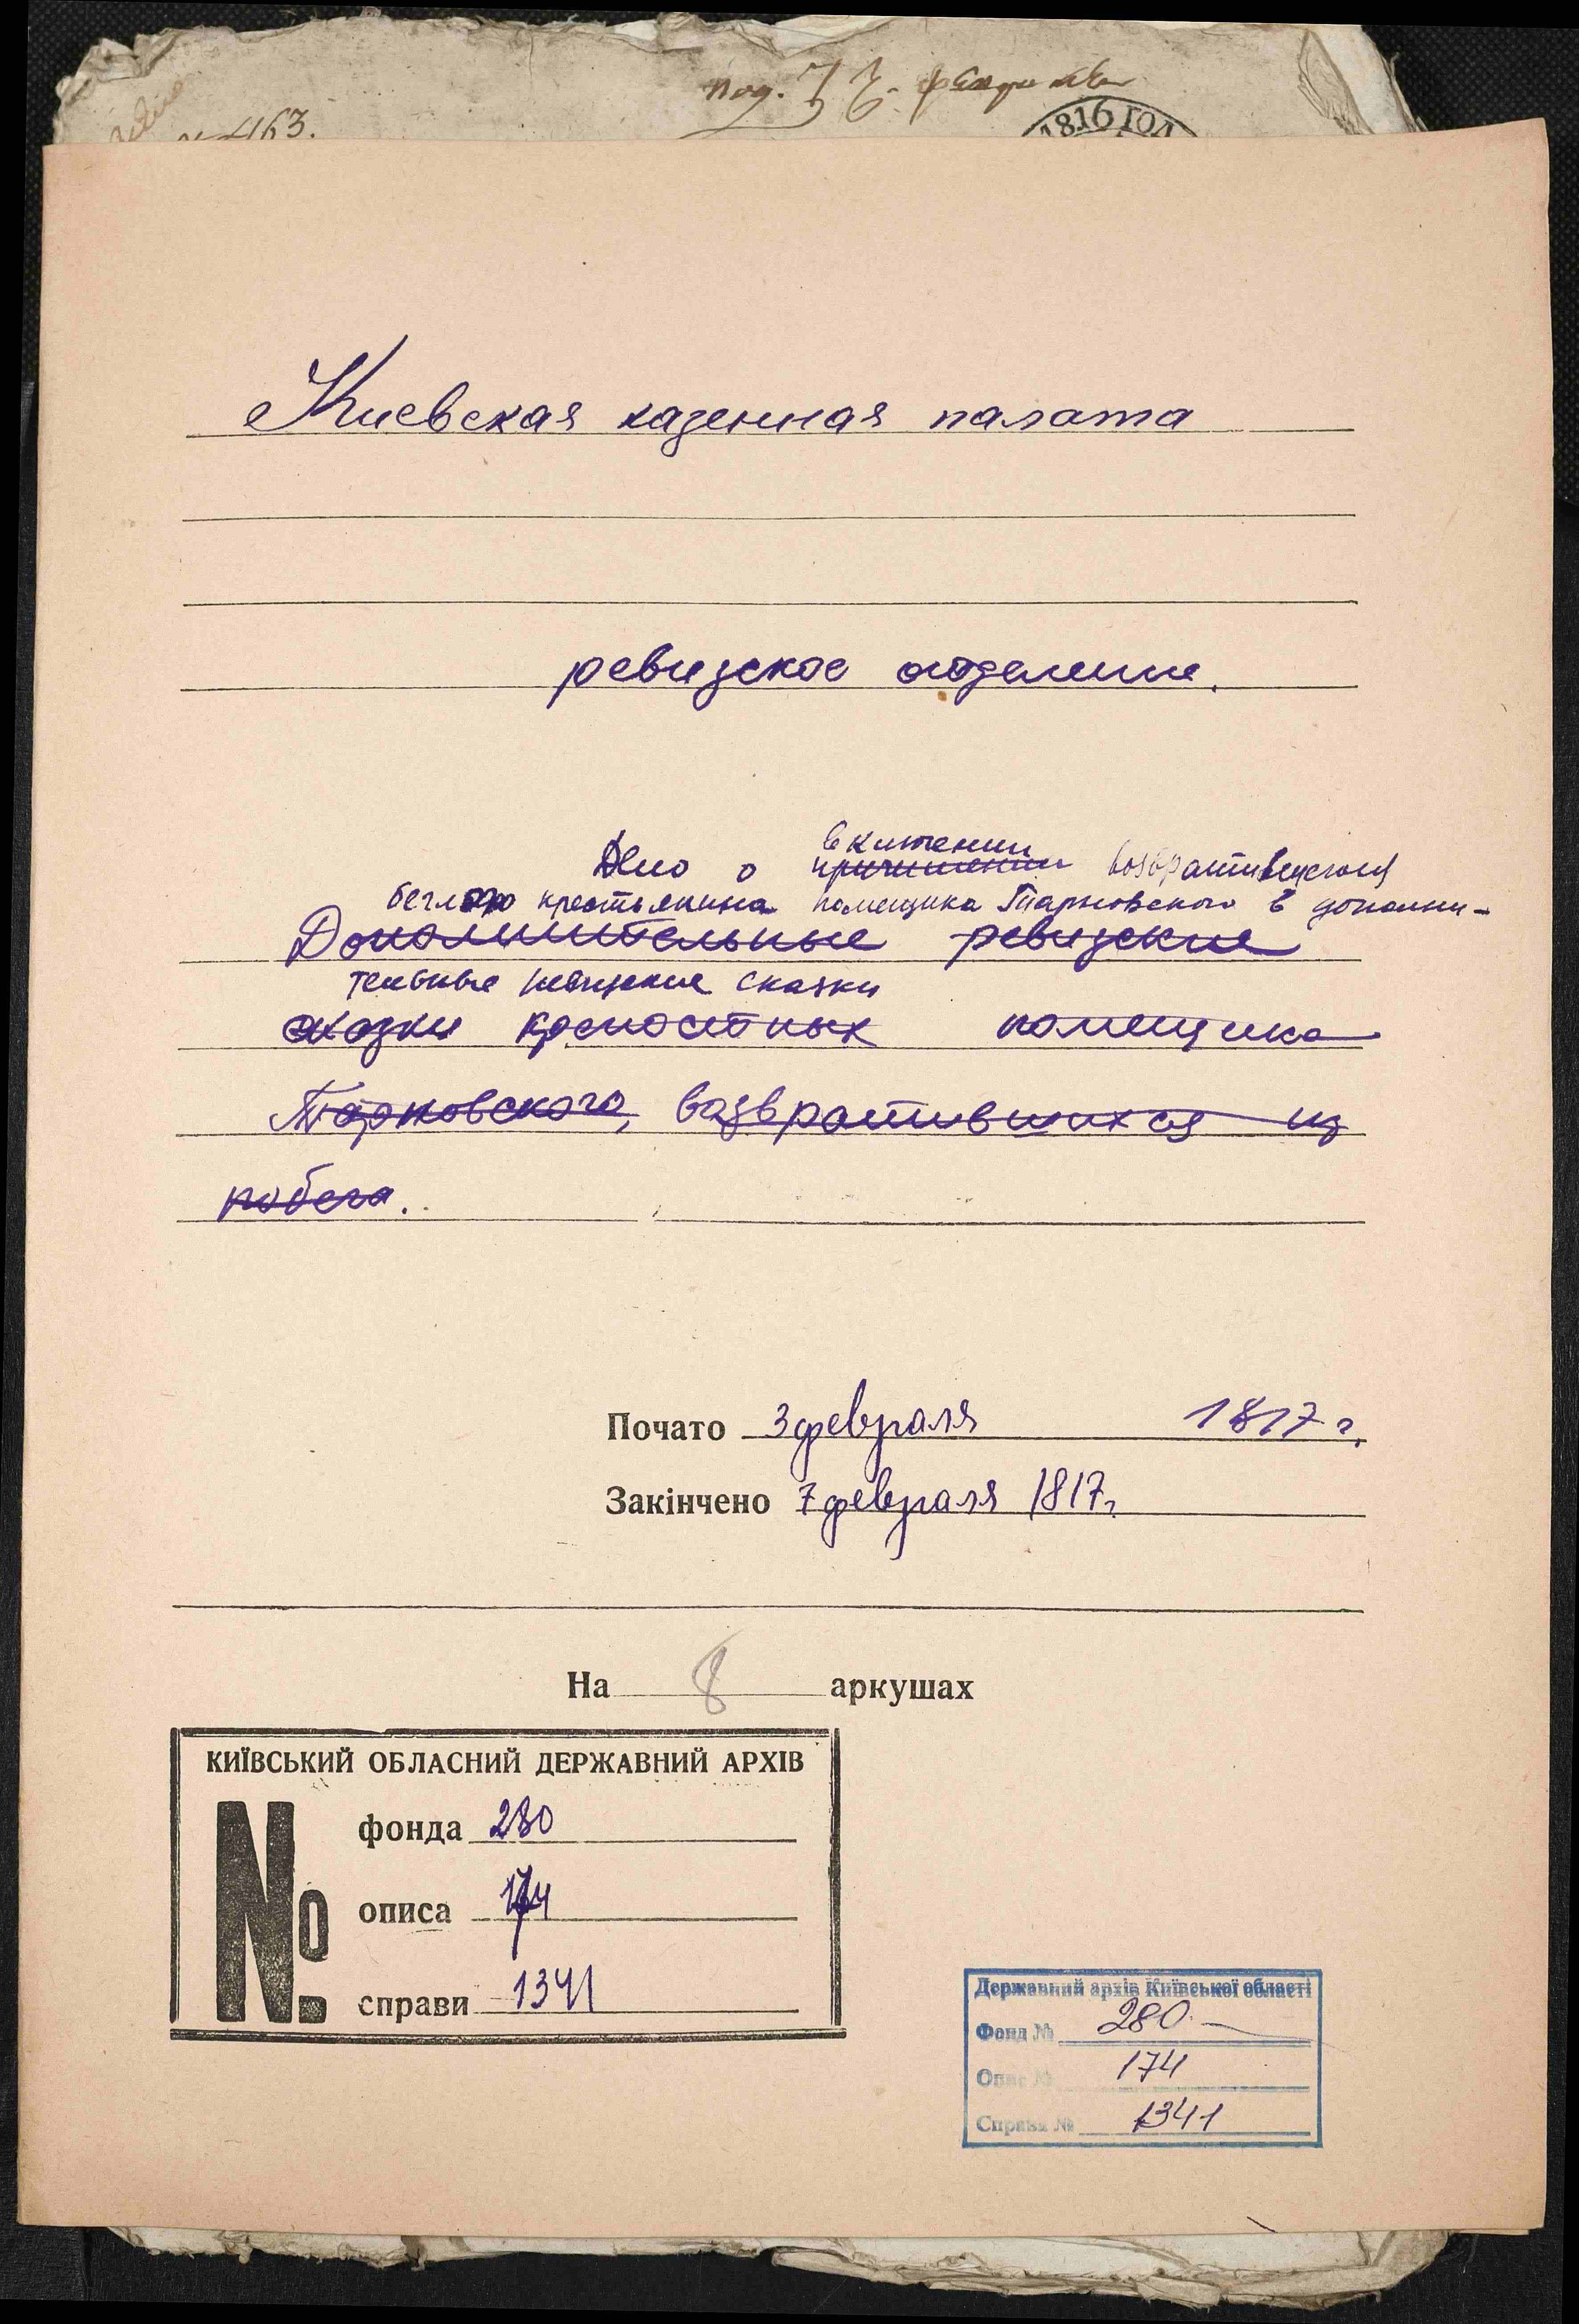 № 463.
1816 ГОД
Киевская казенная палата
ревизское отделение.
включении
Дело о причислении возвратившегося
беглого крестьянина помещика Тарновского в дополни-
Дополнительные ревизские
тельные ревизские сказки
сказки крепостных помещика
Тарновского, возвратившихся из
побега.
Почато 3 февраля 1817 г.
Закінчено 7 февраля 1817 г.
На 8 аркушах
КИЇВСЬКИЙ ОБЛАСНИЙ ДЕРЖАВНИЙ АРХІВ
№
фонда 280
описа 174
справи 1341
Державний архів Київської області
Фонд № 280
Опис № 174
Справа № 1341